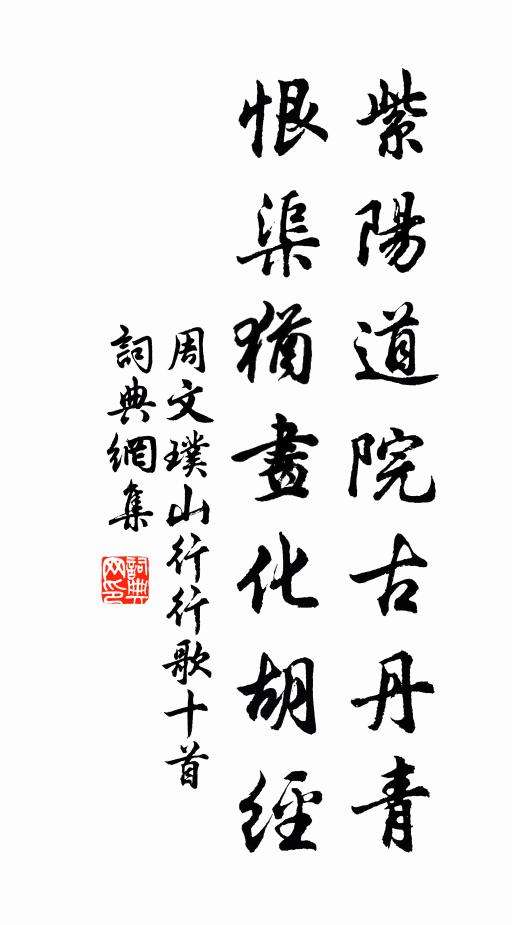 紫陽道院古丹青
恨渠猶畫化胡經
周文璞山行行歌十首
詞典網集
詞典网印